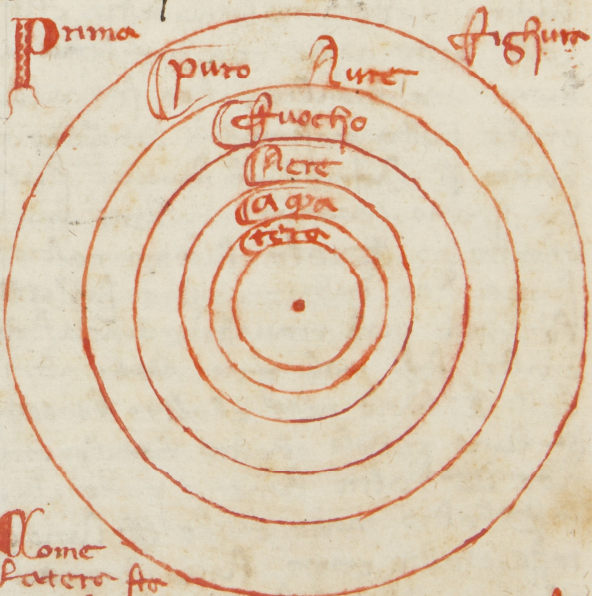 Prima fighura
puro Aire
fuocho
Aere
aqua
tera
Come
la tera sta